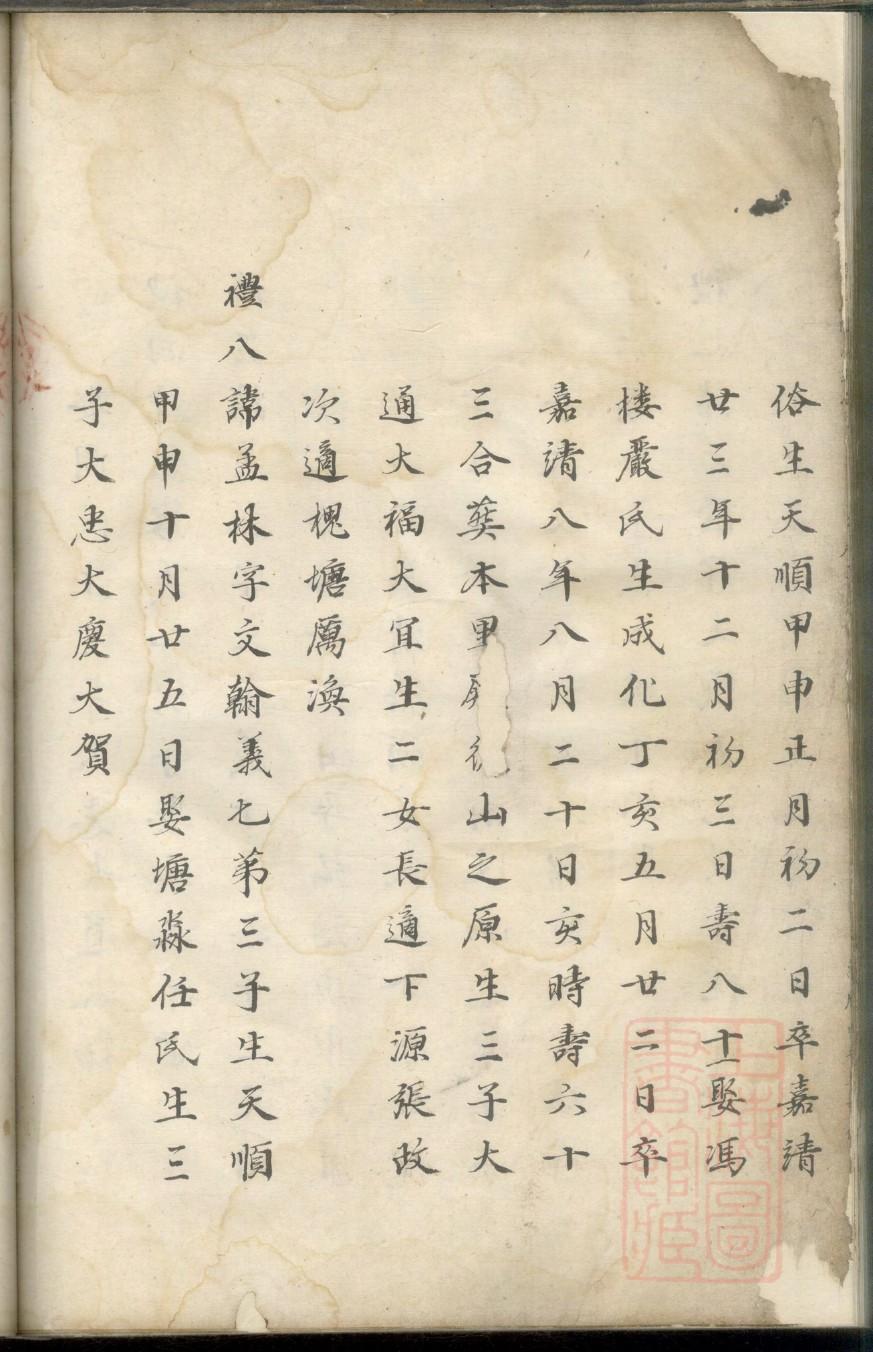 俗生天順甲申正月初二日卒嘉靖
廿三年十二月初三日壽八十一娶馮
楼嚴氏生成化丁亥五月廿二日卒
嘉靖八年八月二十日亥時壽六十
三合葬本里山之原生三子大
通大福大冝生二女長適下源張政
次適槐塘厲渙
禮八諱孟林字文翰義七第三子生天順
甲申十月廿五日娶塘淼任氏生三
子大患大慶大賀